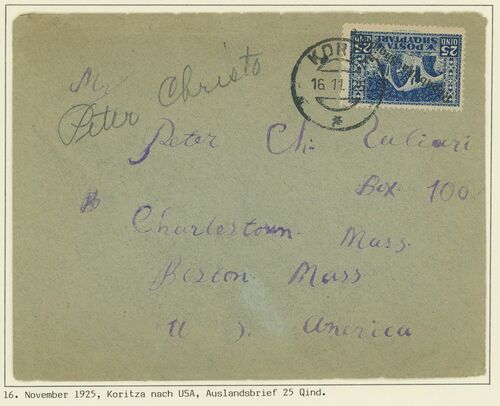 KOR
16. 11.
25 QIND
POSTA
SHQIPTARE
QIND 25
Mr
Peter Christo
Peter Ch: Zuliari
Box 100
Charlestown. Mass.
Boston Mass
U S. America
16. November 1925, Koritza nach USA, Auslandsbrief 25 Qind.